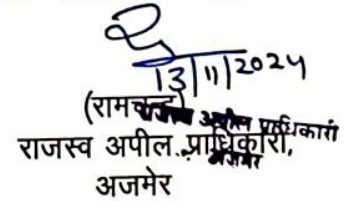 13/11/2024
(रामचन्द्र)
राजस्व अपील प्राधिकारी
राजस्व अपील प्राधिकारी,
अजमेर
अजमेर